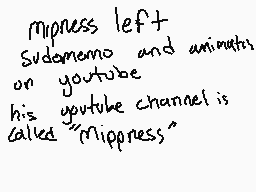 mipness left
sudomemo and animates
on youtube
his youtube channel is
called "mippness"